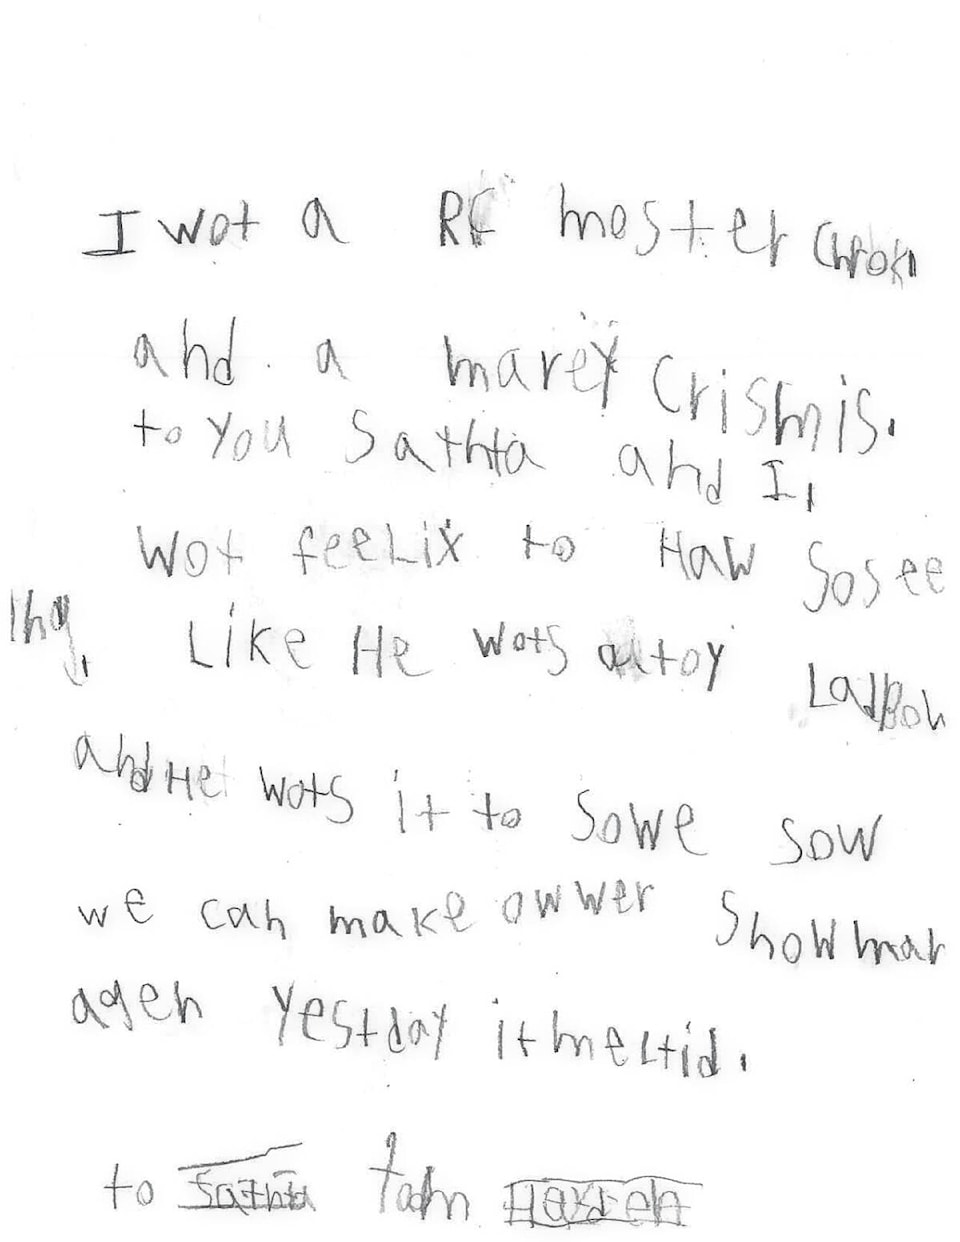 I wot a RC moster Chrok
and a marey Crismis.
to you Santta and I,
wot feeLix to Haw Sosee
Ing, Like He wots a toy LadBon
and He wots it to Sowe sow
we can make owwer Showman
agen yestday it meltid.
to Santa from